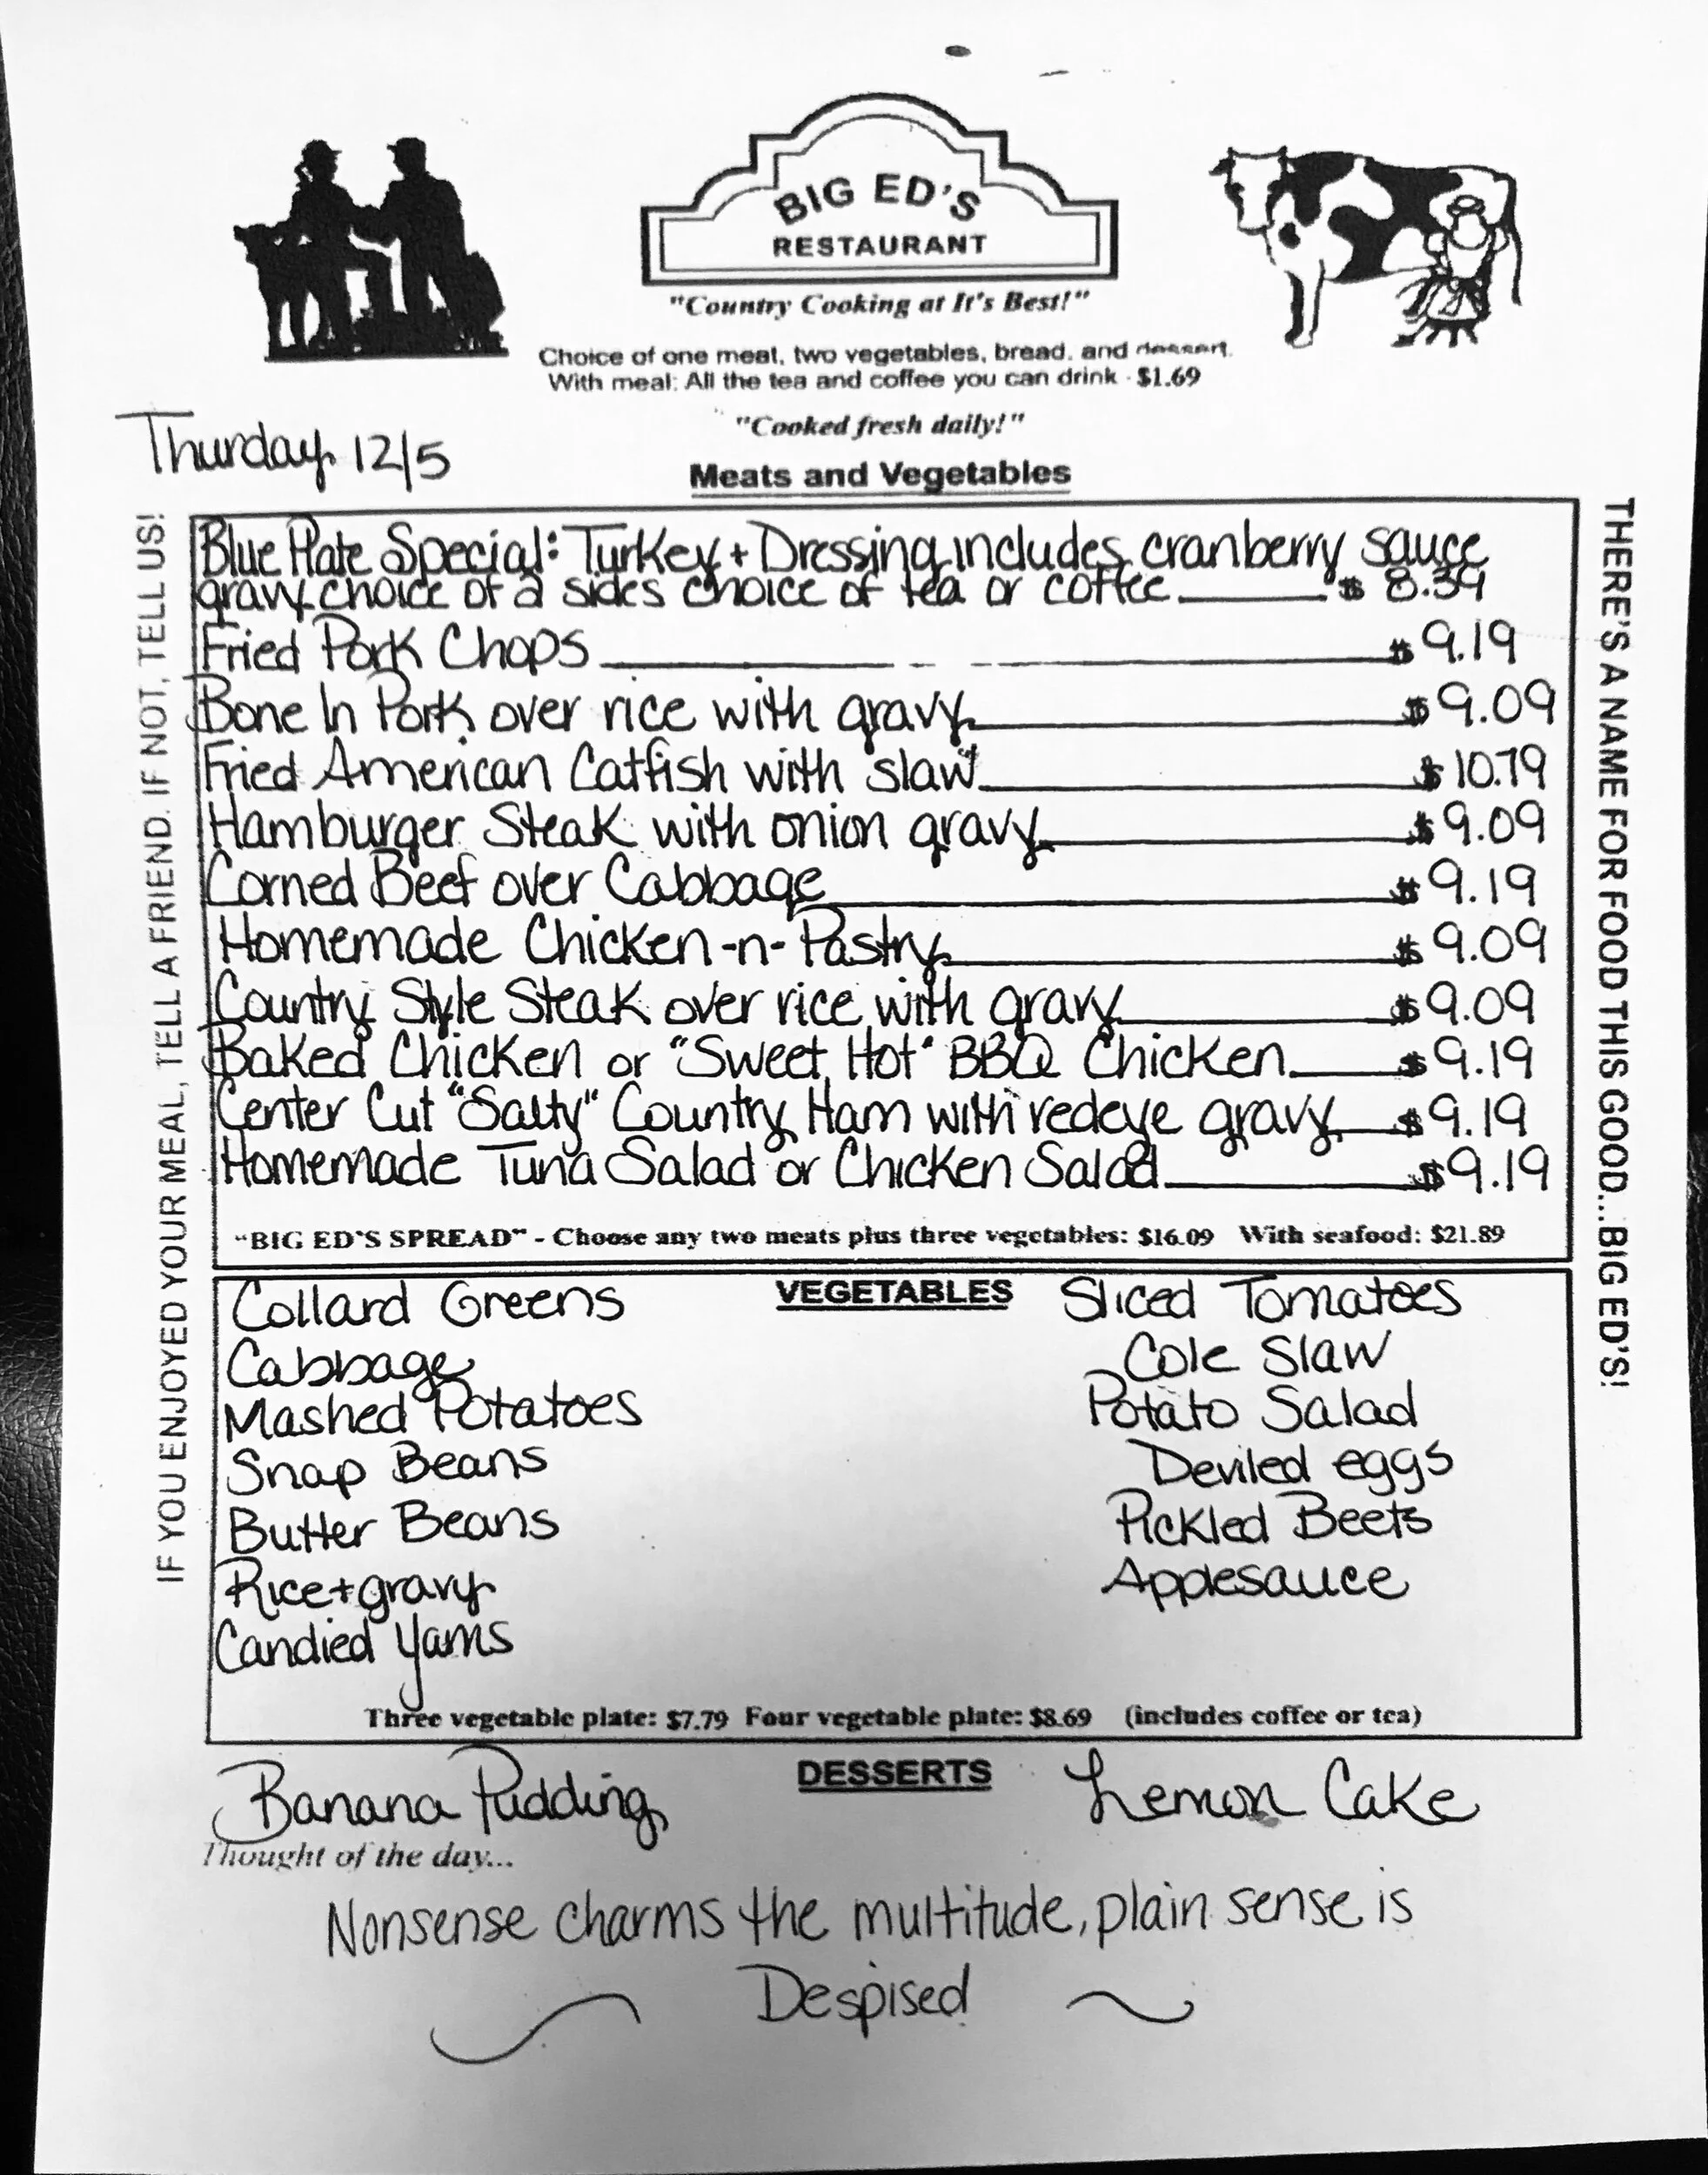 BIG ED'S
RESTAURANT
"Country Cooking at It's Best!"
Choice of one meat, two vegetables, bread, and dessert.
With meal: All the tea and coffee you can drink - $1.69
"Cooked fresh daily!"
Thurday 12/5
Meats and Vegetables
IF YOU ENJOYED YOUR MEAL, TELL A FRIEND. IF NOT, TELL US!
Blue Plate Special: Turkey + Dressing includes cranberry sauce
gravy choice of 2 sides choice of tea or coffee $ 8.39
Fried Pork Chops $ 9.19
Bone In Pork over rice with gravy $ 9.09
Fried American Catfish with "slaw" $ 10.79
Hamburger Steak with onion gravy $ 9.09
Corned Beef over Cabbage $ 9.19
Homemade Chicken-n-Pastry $ 9.09
Country Style Steak over rice with gravy $ 9.09
Baked Chicken or "Sweet Hot" BBQ Chicken $ 9.19
Center Cut "Salty" Country Ham with redeye gravy $ 9.19
Homemade Tuna Salad or Chicken Salad $ 9.19
"BIG ED'S SPREAD" - Choose any two meats plus three vegetables: $16.09 With seafood: $21.89
THERE'S A NAME FOR FOOD THIS GOOD...BIG ED'S!
VEGETABLES
Collard Greens
Cabbage
Mashed Potatoes
Snap Beans
Butter Beans
Rice + gravy
Candied Yams
Sliced Tomatoes
Cole Slaw
Potato Salad
Deviled eggs
Pickled Beets
Applesauce
Three vegetable plate: $7.79 Four vegetable plate: $8.69 (includes coffee or tea)
DESSERTS
Banana Pudding
Lemon Cake
Thought of the day...
Nonsense charms the multitude, plain sense is
Despised